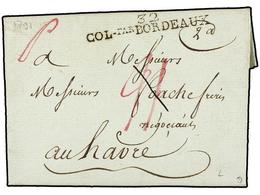 32
COL. PAR BORDEAUX
a Messieurs
Messieurs foache freres
négociants
au havre